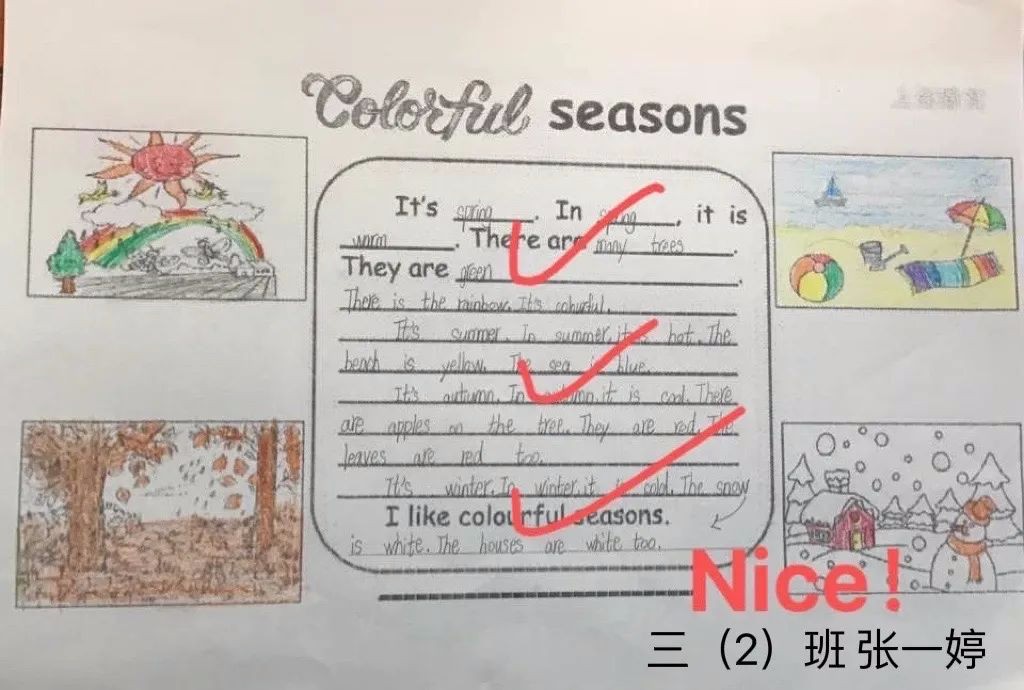 Colorful seasons
It's spring. In spring, it is
warm. There are many trees.
They are green.
There is the rainbow. It's colourful.
It's summer. In summer, it is hot. The
beach is yellow. The sea is blue.
It's autumn. In autumn, it is cool. There
are apples on the tree. They are red. The
leaves are red too.
It's winter. In winter, it is cold. The snow
I like colourful seasons.
is white. The houses are white too.
Nice!
三（2）班 张一婷